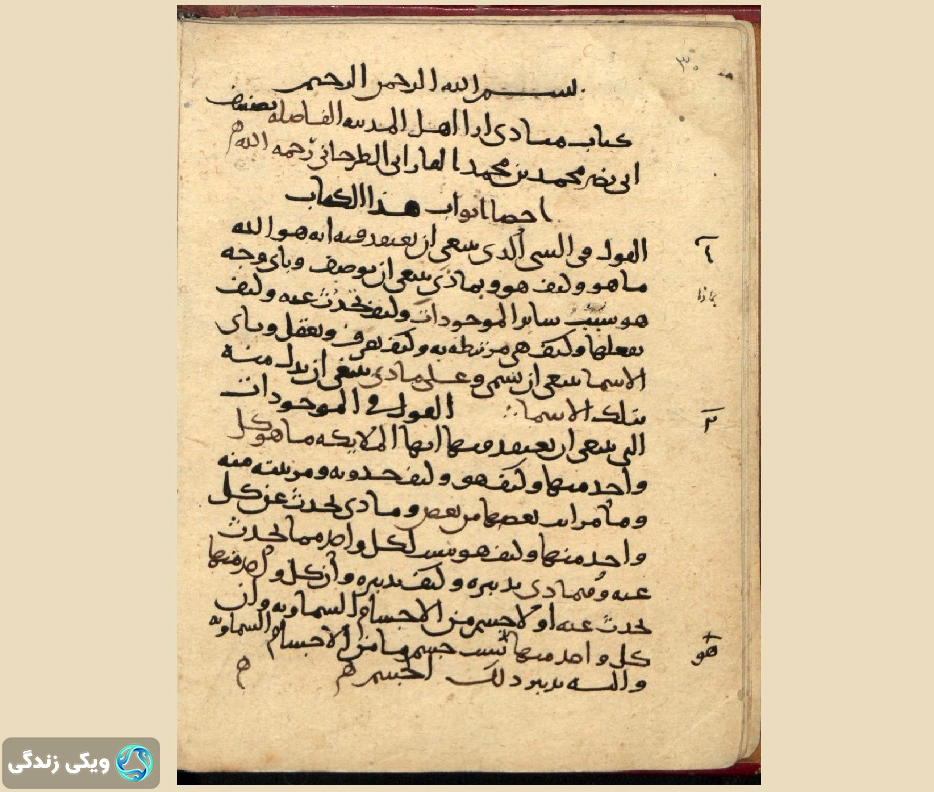 بسم الله الرحمن الرحيم
كتاب مبادى ارا اهل المدينه الفاضله تصنيف
ابى نصر محمد بن محمد الفارابى الطرخانى رحمه الله
احصا ابواب هذا الكتاب
القول فى الشى الذى ينبغى ان يعتقد فيه انه هو الله
ما هو وكيف هو وبماذى ينبغى ان يوصف وباى وجه
هو سبب ساير الموجودات وكيف تحدث عنه وكيف
يفعلها وكيف هى مرتبطه به وكيف يعرف ويعقل وباى
الاسما ينبغى ان يسمى وعلى ماذى ينبغى ان يدل منه
بتلك الاسما القول فى الموجودات
التى ينبغى ان يعتقد فيها انها الملايكه ما هو كل
واحد منها وكيف هو وكيف حدوثه ومرتبته منه
وما مراتب بعضها من بعض وماذى يحدث عن كل
واحد منها وكيف هو سبب لكل واحد مما يحدث
عنه وفيماذى يدبره وكيف تدبيره وان كل واحد منها
يحدث عنه اولا جسم من الاجسام السماويه وان
كل واحد منها سبب جسم ما من الاجسام السماويه
واليه يدبر ذلك الجسم
٣٠
بماذا
٢
هو
ویکی زندگی